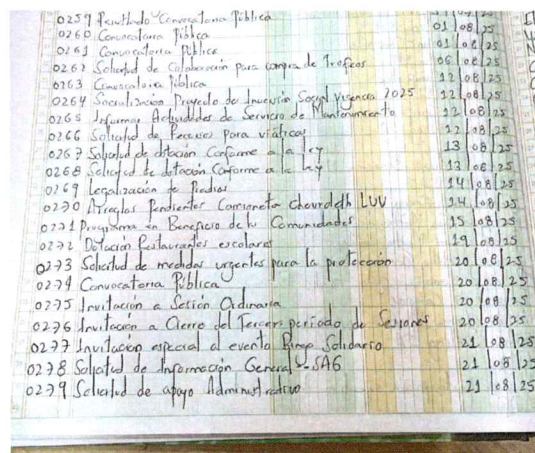 0259 Resultado Convocatoria Pública 01/08/25
0260 Convocatoria Pública 01/08/25
0261 Convocatoria Pública 01/08/25
0262 Solicitud de Colaboración para compra de Trofeos 06/08/25
0263 Convocatoria Pública 12/08/25
0264 Socialización Proyecto de Inversión Social Vigencia 2025 12/08/25
0265 Informar Actividades de Servicio de Mantenimiento 12/08/25
0266 Solicitud de Recursos para viáticos 12/08/25
0267 Solicitud de dotación Conforme a la ley 13/08/25
0268 Solicitud de dotación Conforme a la ley 13/08/25
0269 Legalización de Predios 14/08/25
0270 Arreglos Pendientes Camioneta LUV 14/08/25
0271 Programa en Beneficio de Comunidades 15/08/25
0272 Dotación Restaurantes escolares 19/08/25
0273 Solicitud de medidas urgentes para la protección 20/08/25
0274 Convocatoria Pública 20/08/25
0275 Invitación a Sesión Ordinaria 20/08/25
0276 Invitación a Cierre del Tercer periodo de Sesiones 20/08/25
0277 Invitación especial al evento Bingo Solidario 21/08/25
0278 Solicitud de Información General - SAG 21/08/25
0279 Solicitud de apoyo Administrativo 21/08/25